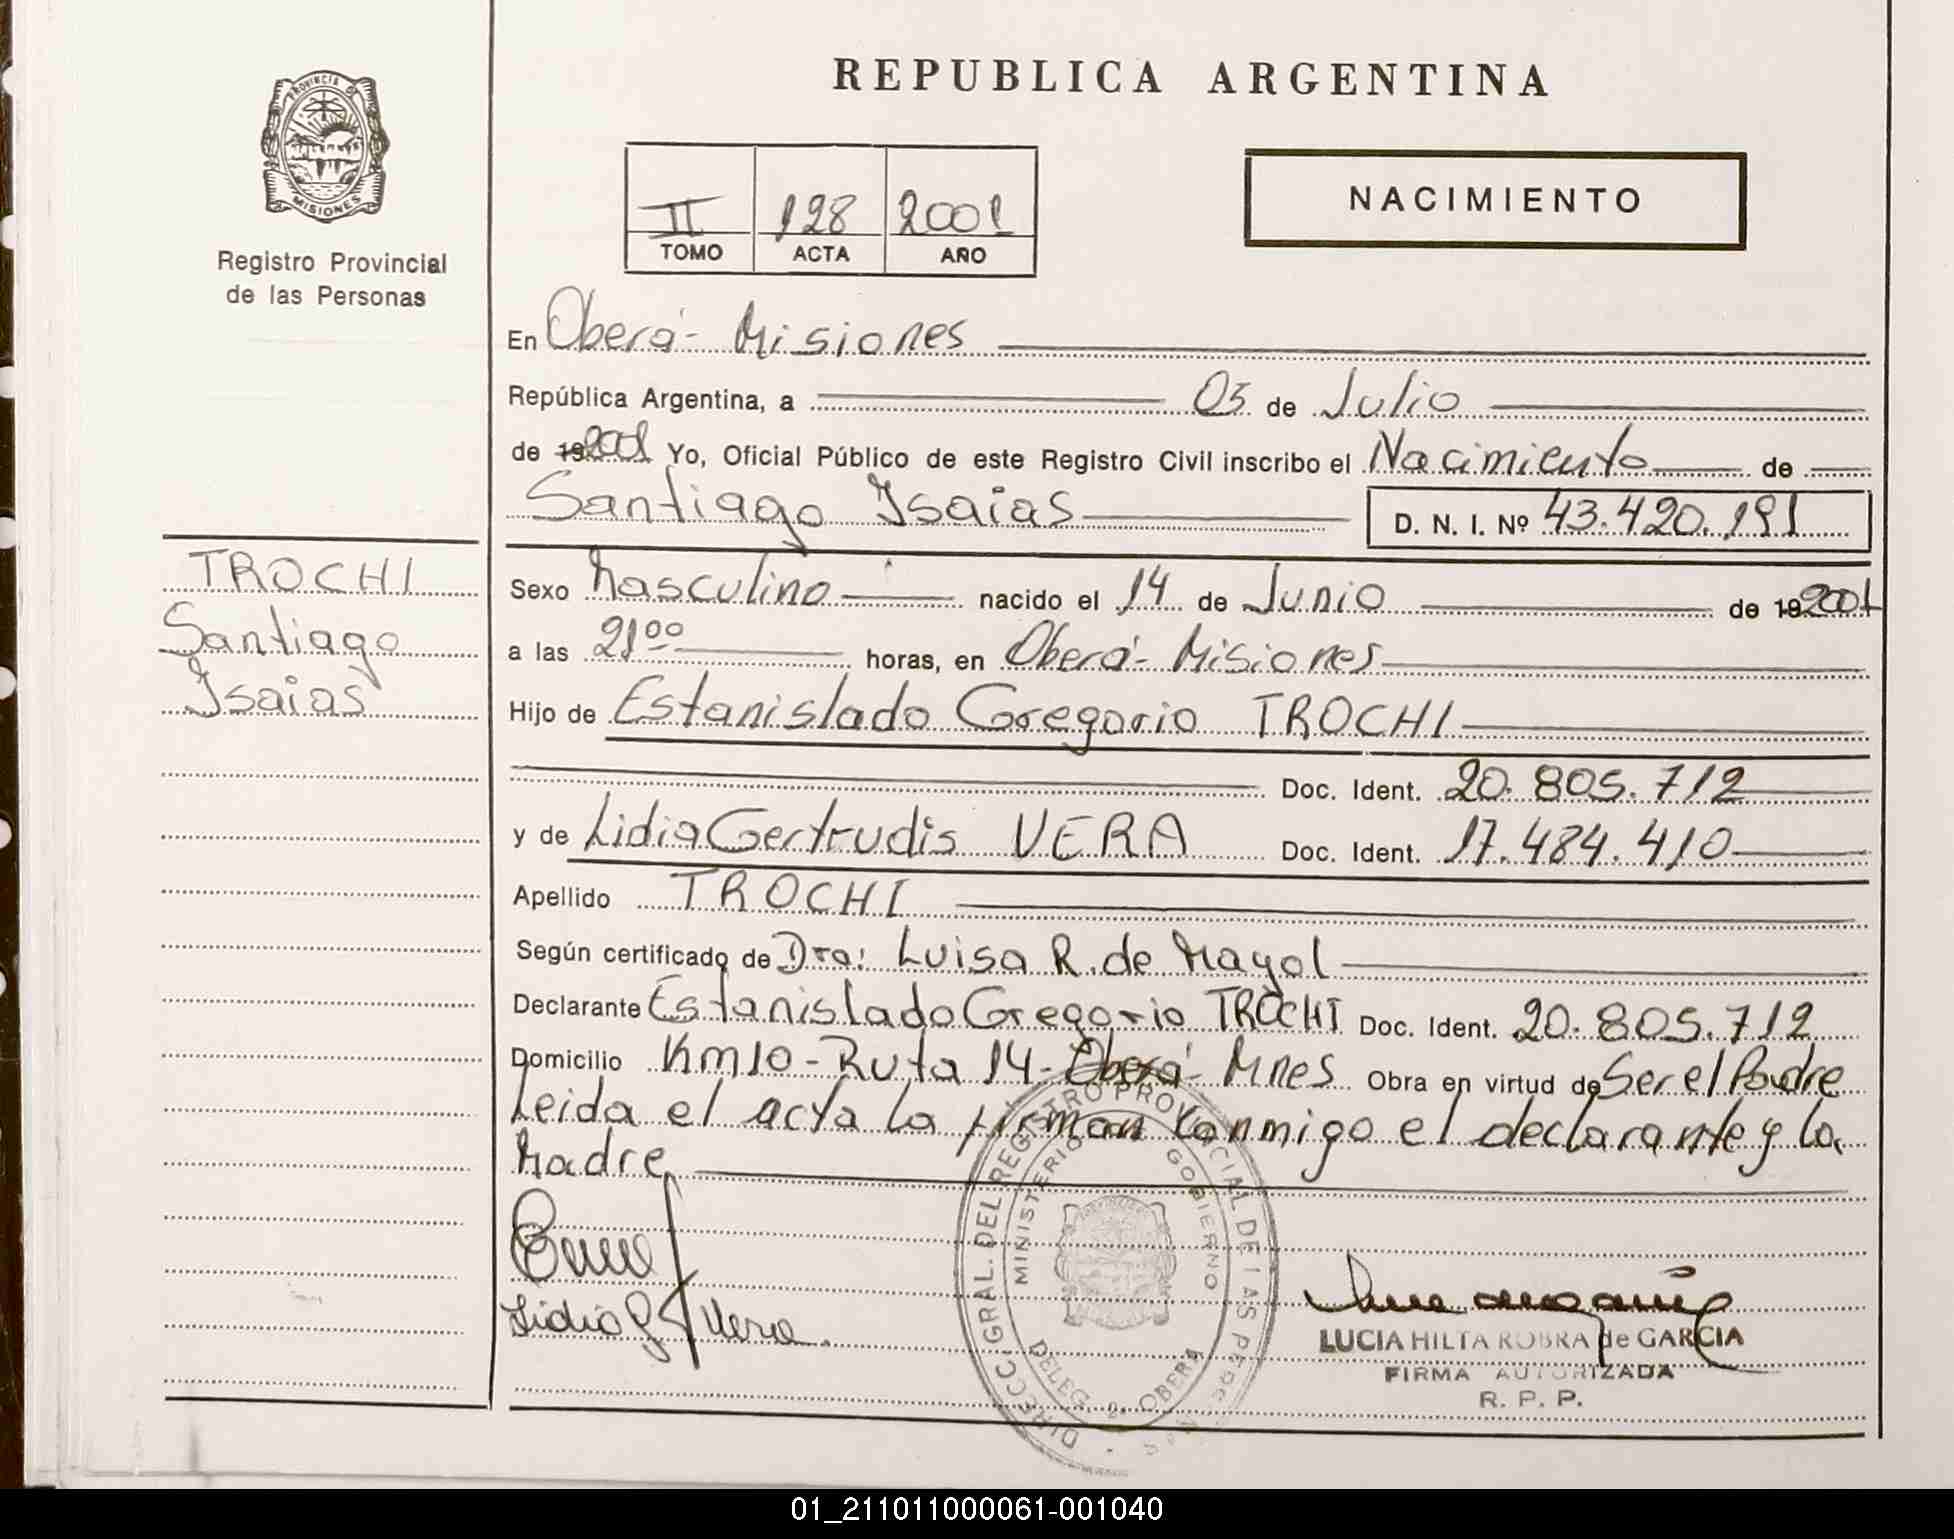 PROVINCIA DE
MISIONES
Registro Provincial
de las Personas
TROCHI
Santiago
Isaias
REPUBLICA ARGENTINA
II 128 2001
TOMO ACTA AÑO
NACIMIENTO
En Oberá - Misiones
República Argentina, a 05 de Julio
de 19 2001 Yo, Oficial Público de este Registro Civil inscribo el Nacimiento de
Santiago Isaias D. N. I. Nº 43.420.191
Sexo Masculino nacido el 14 de Junio de 19 2001
a las 21⁰⁰ horas, en Oberá - Misiones
Hijo de Estanislado Gregorio TROCHI
Doc. Ident. 20.805.712
y de Lidia Gertrudis VERA Doc. Ident. 17.484.410
Apellido TROCHI
Según certificado de Dra: Luisa R. de Mayol
Declarante Estanislado Gregorio TROCHI Doc. Ident. 20.805.712
Domicilio Km 10 - Ruta 14 - Oberá - Mnes Obra en virtud de Ser el Padre
Leida el acta la firman conmigo el declarante y la
Madre
Lidia G Vera.
DIRECC. GRAL. DEL REGISTRO PROVINCIAL DE LAS PERSONAS
MINISTERIO GOBIERNO
DELEG. OBERA
LUCIA HILTA ROBRA de GARCIA
FIRMA AUTORIZADA
R. P. P.
01_211011000061-001040